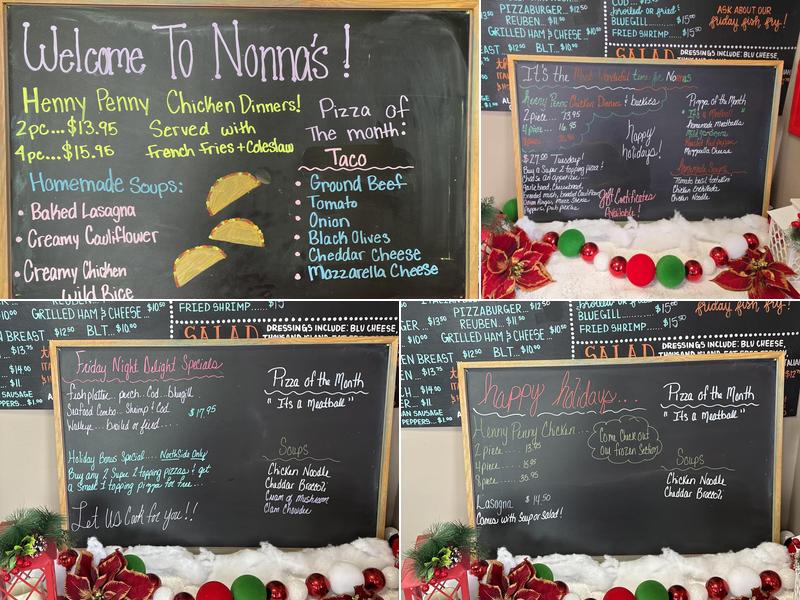 Welcome To Nonna's!
Henny Penny Chicken Dinners!
2pc...$13.95 Served with
4pc....$15.95 French Fries + Coleslaw
Homemade Soups:
• Baked Lasagna
• Creamy Cauliflower
• Creamy Chicken
Wild Rice
Pizza of
The month:
Taco
• Ground Beef
• Tomato
• Onion
• Black Olives
• Cheddar Cheese
• Mozzarella Cheese
PIZZABURGER...$12
REUBEN...$11
GRILLED HAM & CHEESE...$10
BLT...$10
broiled or fried:
BLUEGILL......$15
FRIED SHRIMP.....$15
ASK ABOUT OUR
friday fish fry!
SALAD
DRESSINGS INCLUDE: BLU CHEESE,
It's the Most Wonderful time for Nonnas
Henny Penny Chicken Dinners
2 piece.... 13.95
4 piece.... 16.95
$27.00 Tuesday!
Buy a Super 2 topping pizza &
Happy
holidays!
Gift Certificates
Available!
Pizza of the Month
It's a Meatball
homemade meatballs
Mozzarella Cheese
Homemade Soups
Chicken Enchilada
Chicken Noodle
FRIED SHRIMP.....$15
GRILLED HAM & CHEESE...$10
BLT...$10
SALAD
DRESSINGS INCLUDE: BLU CHEESE,
Friday Night Delight Specials
Fish platter... perch.. Cod... bluegill..
Seafood Combo... Shrimp & Cod $17.95
Walleye.... broiled or fried....
Holiday Bonus Special.... Northside Only
Buy any 2 Super 2 topping pizzas & get
a Small 1 topping pizza for free....
Let Us Cook for You!!
Pizza of the Month
"Its a Meatball"
Soups
Chicken Noodle
Cheddar Broccoli
Cream of Mushroom
Clam Chowder
PIZZABURGER...$12
REUBEN...$11
GRILLED HAM & CHEESE...$10
BLT...$10
broiled or fried:
BLUEGILL......$15
FRIED SHRIMP.....$15
friday fish fry!
SALAD
DRESSINGS INCLUDE: BLU CHEESE,
happy holidays...
Henny Penny Chicken...
2 piece.... 13.95
4 piece....
8 piece....
Lasagna $14.50
Comes with Soup or Salad!
Come Check Out
Our Frozen Section!
Pizza of the Month
"Its a Meatball"
Soups
Chicken Noodle
Cheddar Broccoli